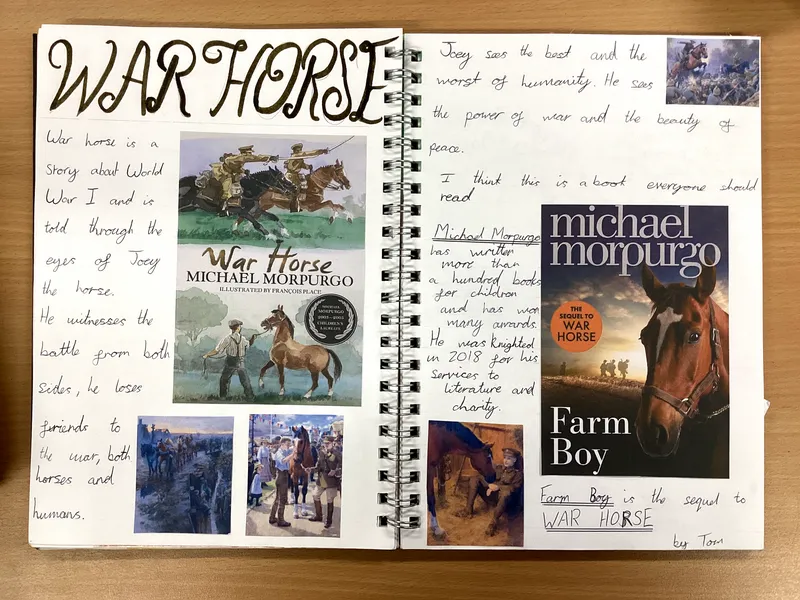 WAR HORSE
War horse is a
story about World
War I and is
told through the
eyes of Joey
the horse.
He witnesses the
battle from both
sides, he loses
friends to
the war, both
horses and
humans.
War Horse
MICHAEL MORPURGO
ILLUSTRATED BY FRANÇOIS PLACE
MICHAEL
MORPURGO
2003-2005
CHILDREN'S
LAUREATE
Joey sees the best and the
worst of humanity. He sees
the power of war and the beauty of
peace.
I think this is a book everyone should
read
Michael Morpurgo
has written
more than
a hundred books
for children
and has won
many awards.
He was knighted
in 2018 for his
services to
literature and
charity.
michael
morpurgo
THE
SEQUEL TO
WAR
HORSE
Farm
Boy
Farm Boy is the sequel to
WAR HORSE
by Tom